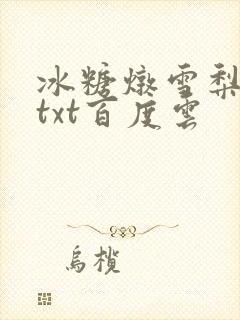 冰糖燉雪梨
txt百度雲
烏欖